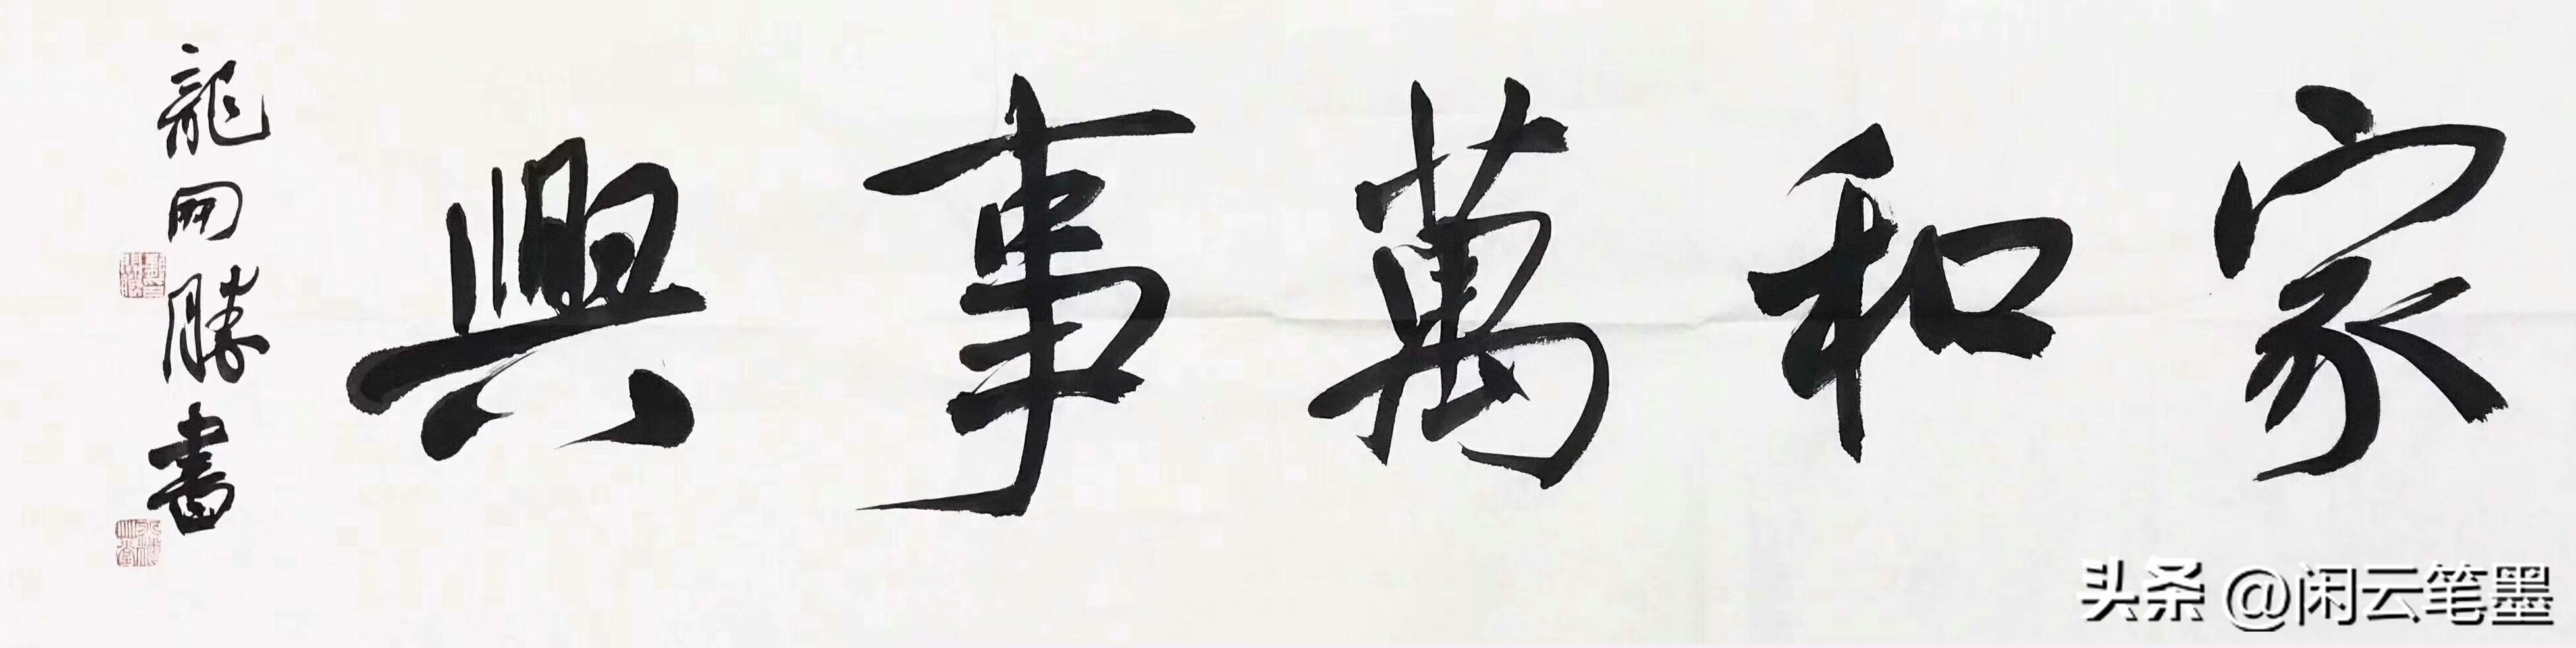 家和萬事興
龍開勝書
头条 @闲云笔墨